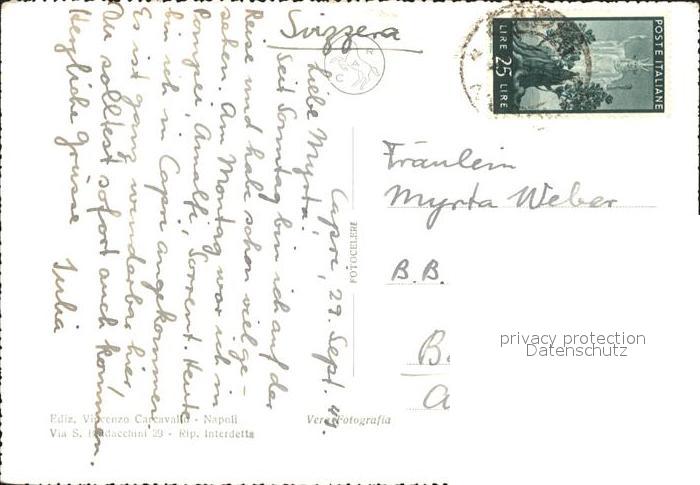 Svizzera
POSTE ITALIANE
LIRE 25 LIRE
Capri, 29. Sept. 49.
Liebe Myrta!
Seit Sonntag bin ich auf der
Reise und habe schon viel ge-
sehen. Am Montag war ich in
Pompei, Amalfi, Sorrent. Heute
bin ich in Capri angekommen.
Es ist ganz wunderbar hier,
Du solltest sofort auch kommen.
Herzliche Grüsse Julia
FOTOCELERE
Fräulein
Myrta Weber
B.B.
B
A
privacy protection
Datenschutz
Ediz. Vincenzo Carcavallo - Napoli
Via S. Baldacchini 29 - Rip. Interdetta
Vera Fotografia